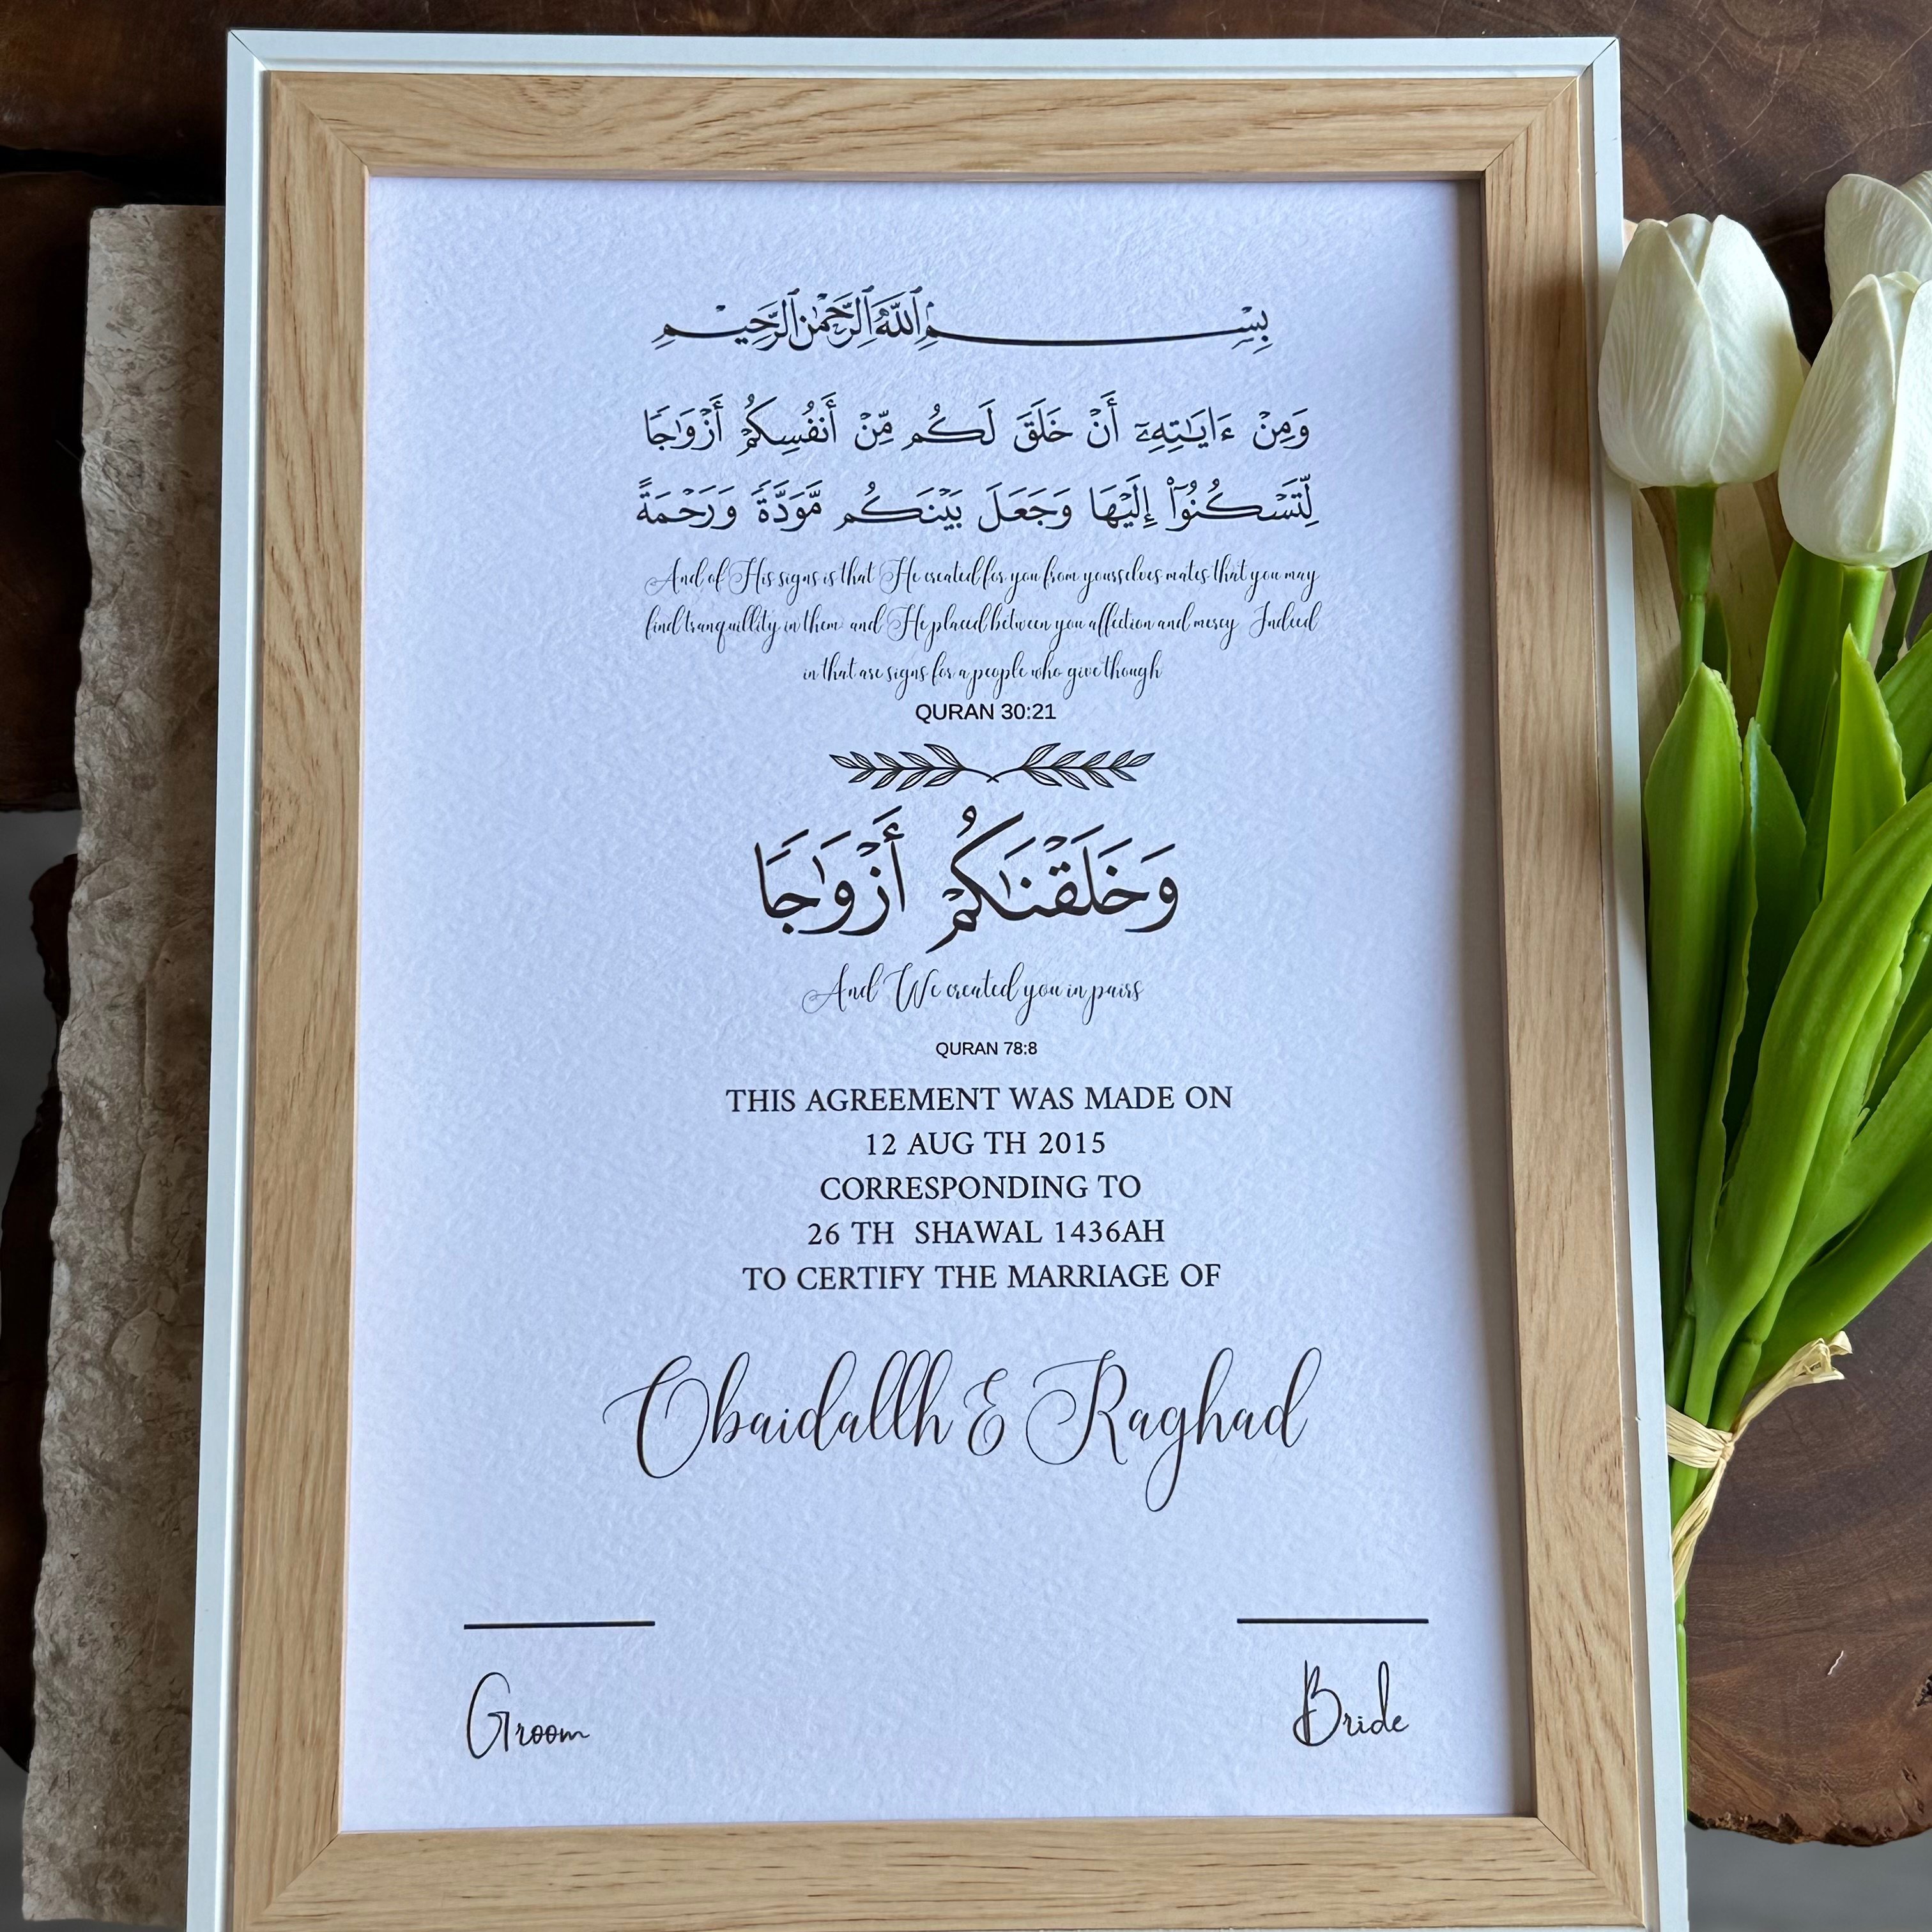 بِسْمِ ٱللَّهِ ٱلرَّحْمَٰنِ ٱلرَّحِيمِ
وَمِنْ ءَايَـٰتِهِۦٓ أَنْ خَلَقَ لَكُم مِّنْ أَنفُسِكُمْ أَزْوَٰجًا
لِّتَسْكُنُوٓا۟ إِلَيْهَا وَجَعَلَ بَيْنَكُم مَّوَدَّةً وَرَحْمَةً
And of His signs is that He created for you from yourselves mates that you may
find tranquillity in them and He placed between you affection and mercy Indeed
in that are signs for a people who give though
QURAN 30:21
وَخَلَقْنَـٰكُمْ أَزْوَٰجًا
And We created you in pairs
QURAN 78:8
THIS AGREEMENT WAS MADE ON
12 AUG TH 2015
CORRESPONDING TO
26 TH SHAWAL 1436AH
TO CERTIFY THE MARRIAGE OF
Obaidallh & Raghad
Groom Bride